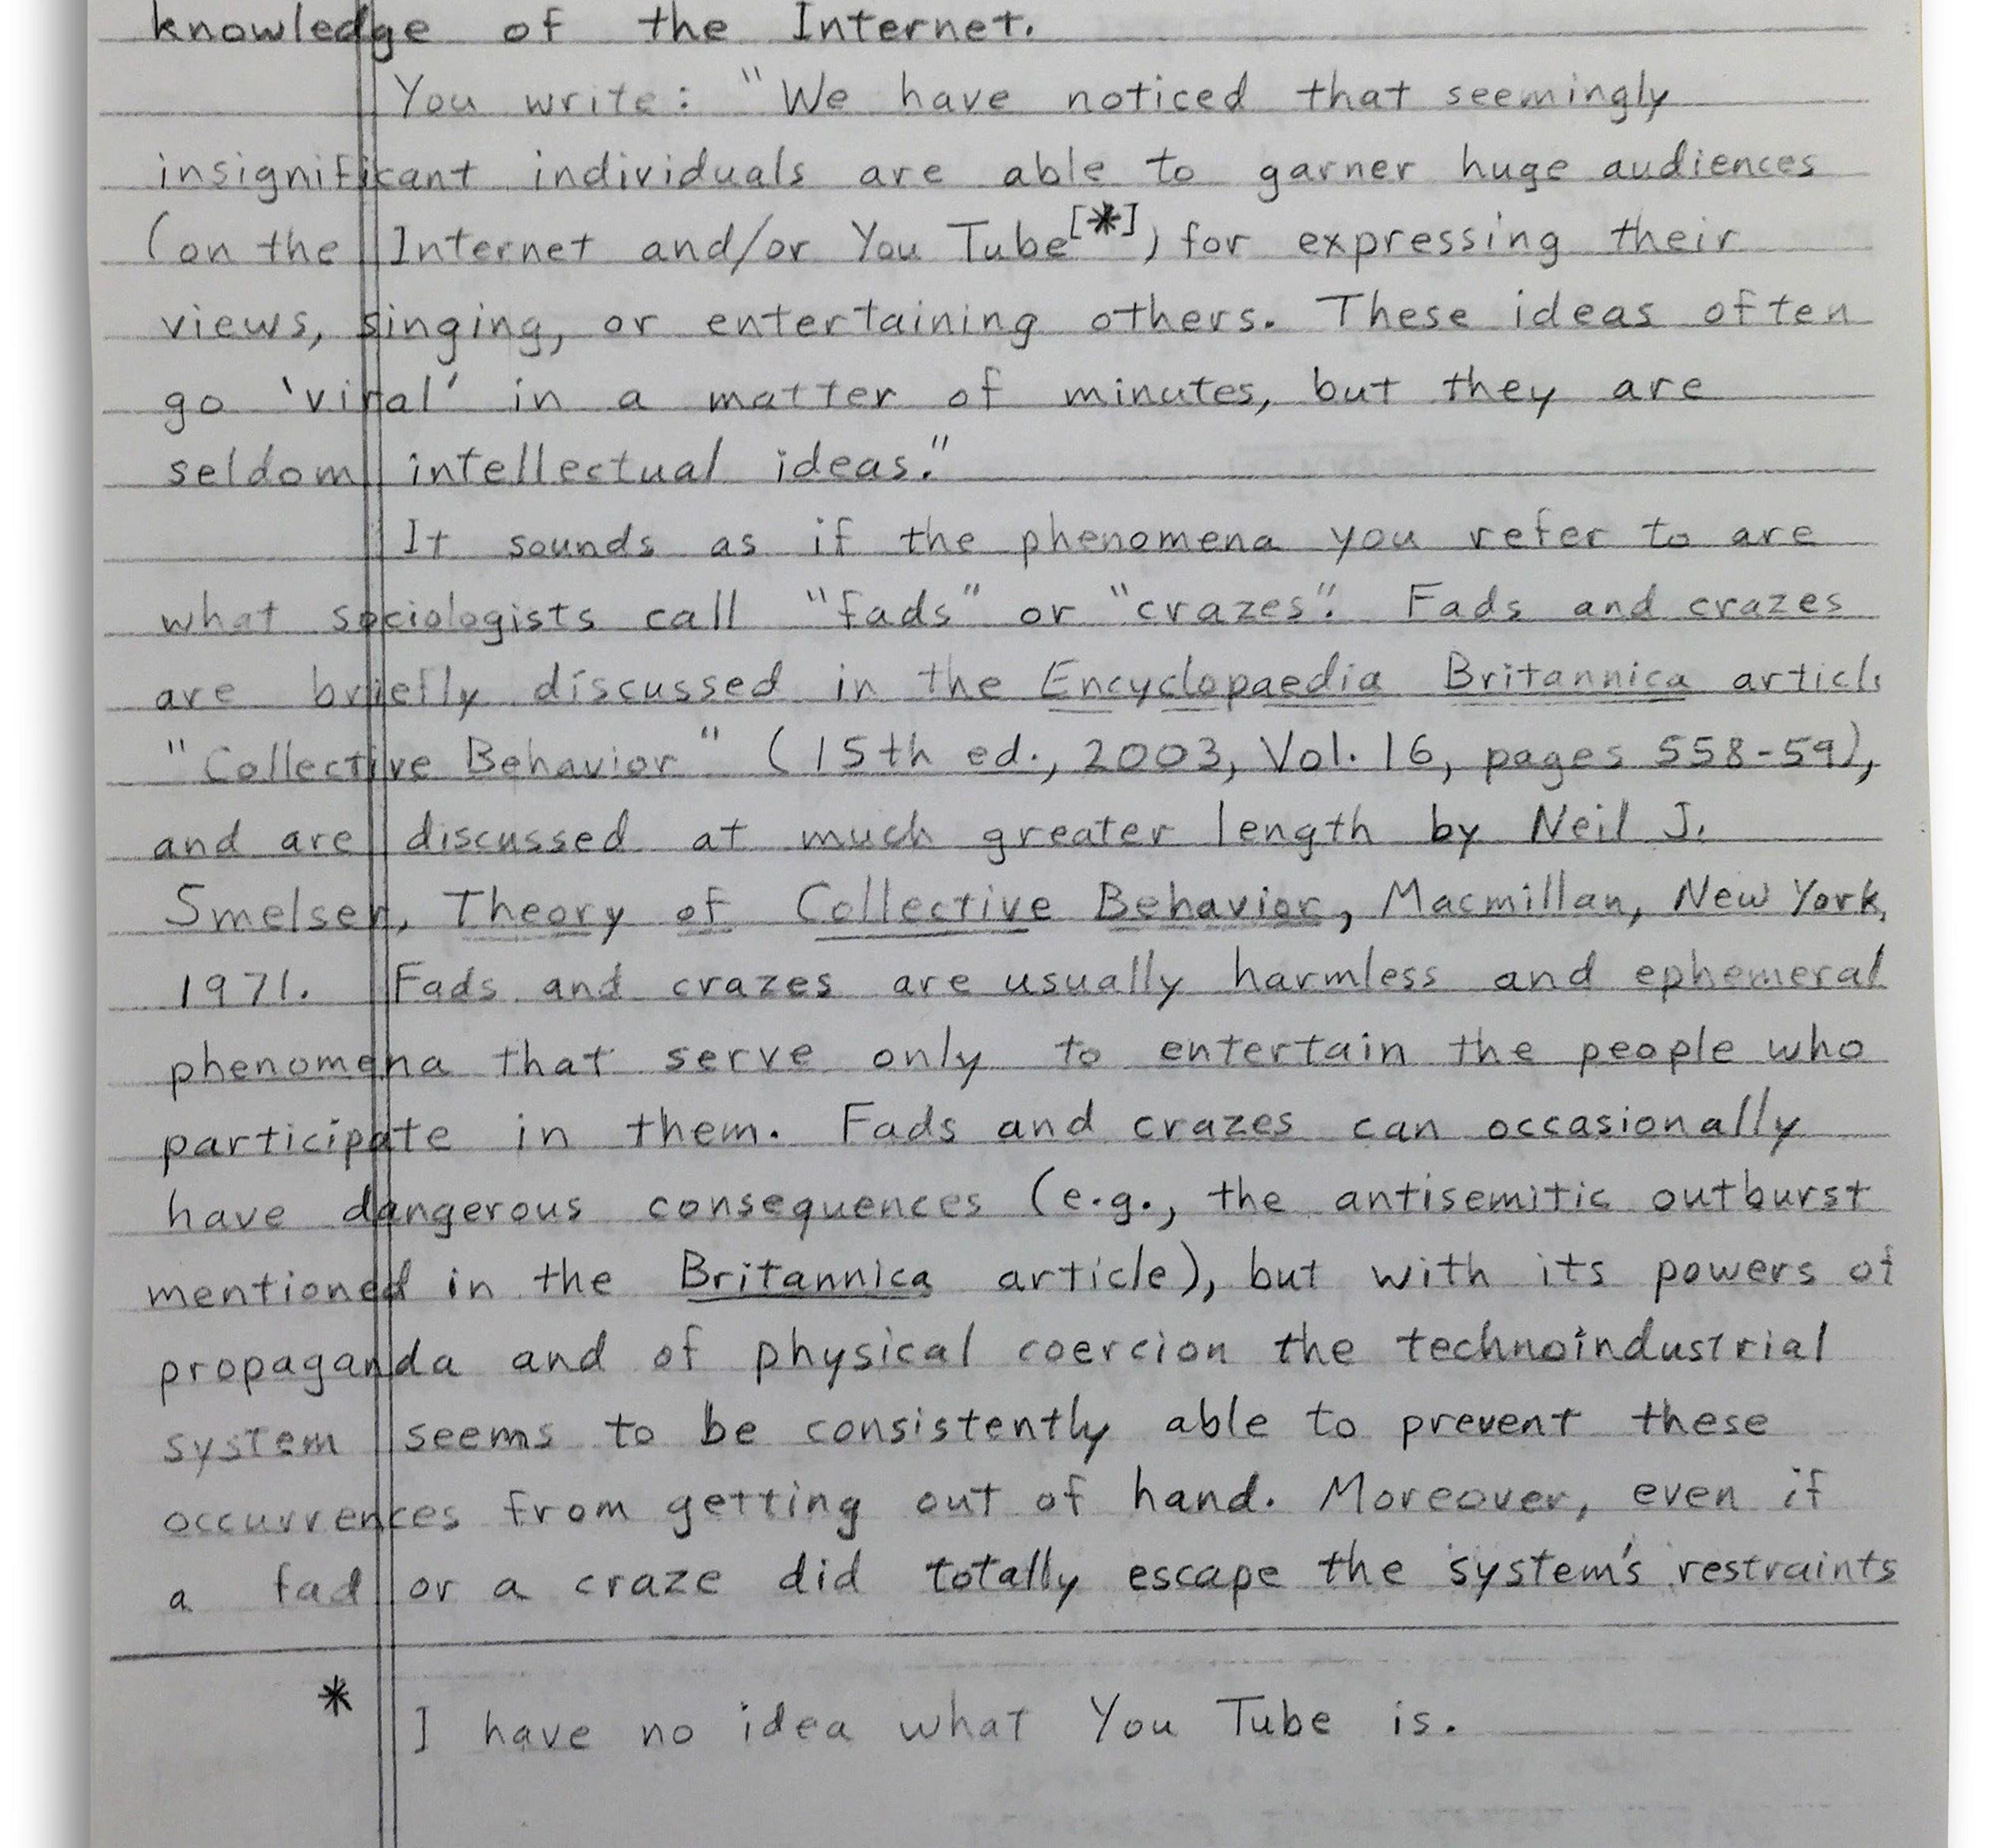 knowledge of the Internet.
You write: "We have noticed that seemingly
insignificant individuals are able to garner huge audiences
(on the Internet and/or You Tube[*]) for expressing their
views, singing, or entertaining others. These ideas often
go 'viral' in a matter of minutes, but they are
seldom intellectual ideas."
It sounds as if the phenomena you refer to are
what sociologists call "fads" or "crazes". Fads and crazes
are briefly discussed in the Encyclopaedia Britannica article
"Collective Behavior" (15th ed., 2003, Vol. 16, pages 558-59),
and are discussed at much greater length by Neil J.
Smelser, Theory of Collective Behavior, Macmillan, New York,
1971. Fads and crazes are usually harmless and ephemeral
phenomena that serve only to entertain the people who
participate in them. Fads and crazes can occasionally
have dangerous consequences (e.g., the antisemitic outburst
mentioned in the Britannica article), but with its powers of
propaganda and of physical coercion the technoindustrial
system seems to be consistently able to prevent these
occurrences from getting out of hand. Moreover, even if
a fad or a craze did totally escape the system's restraints
* I have no idea what You Tube is.